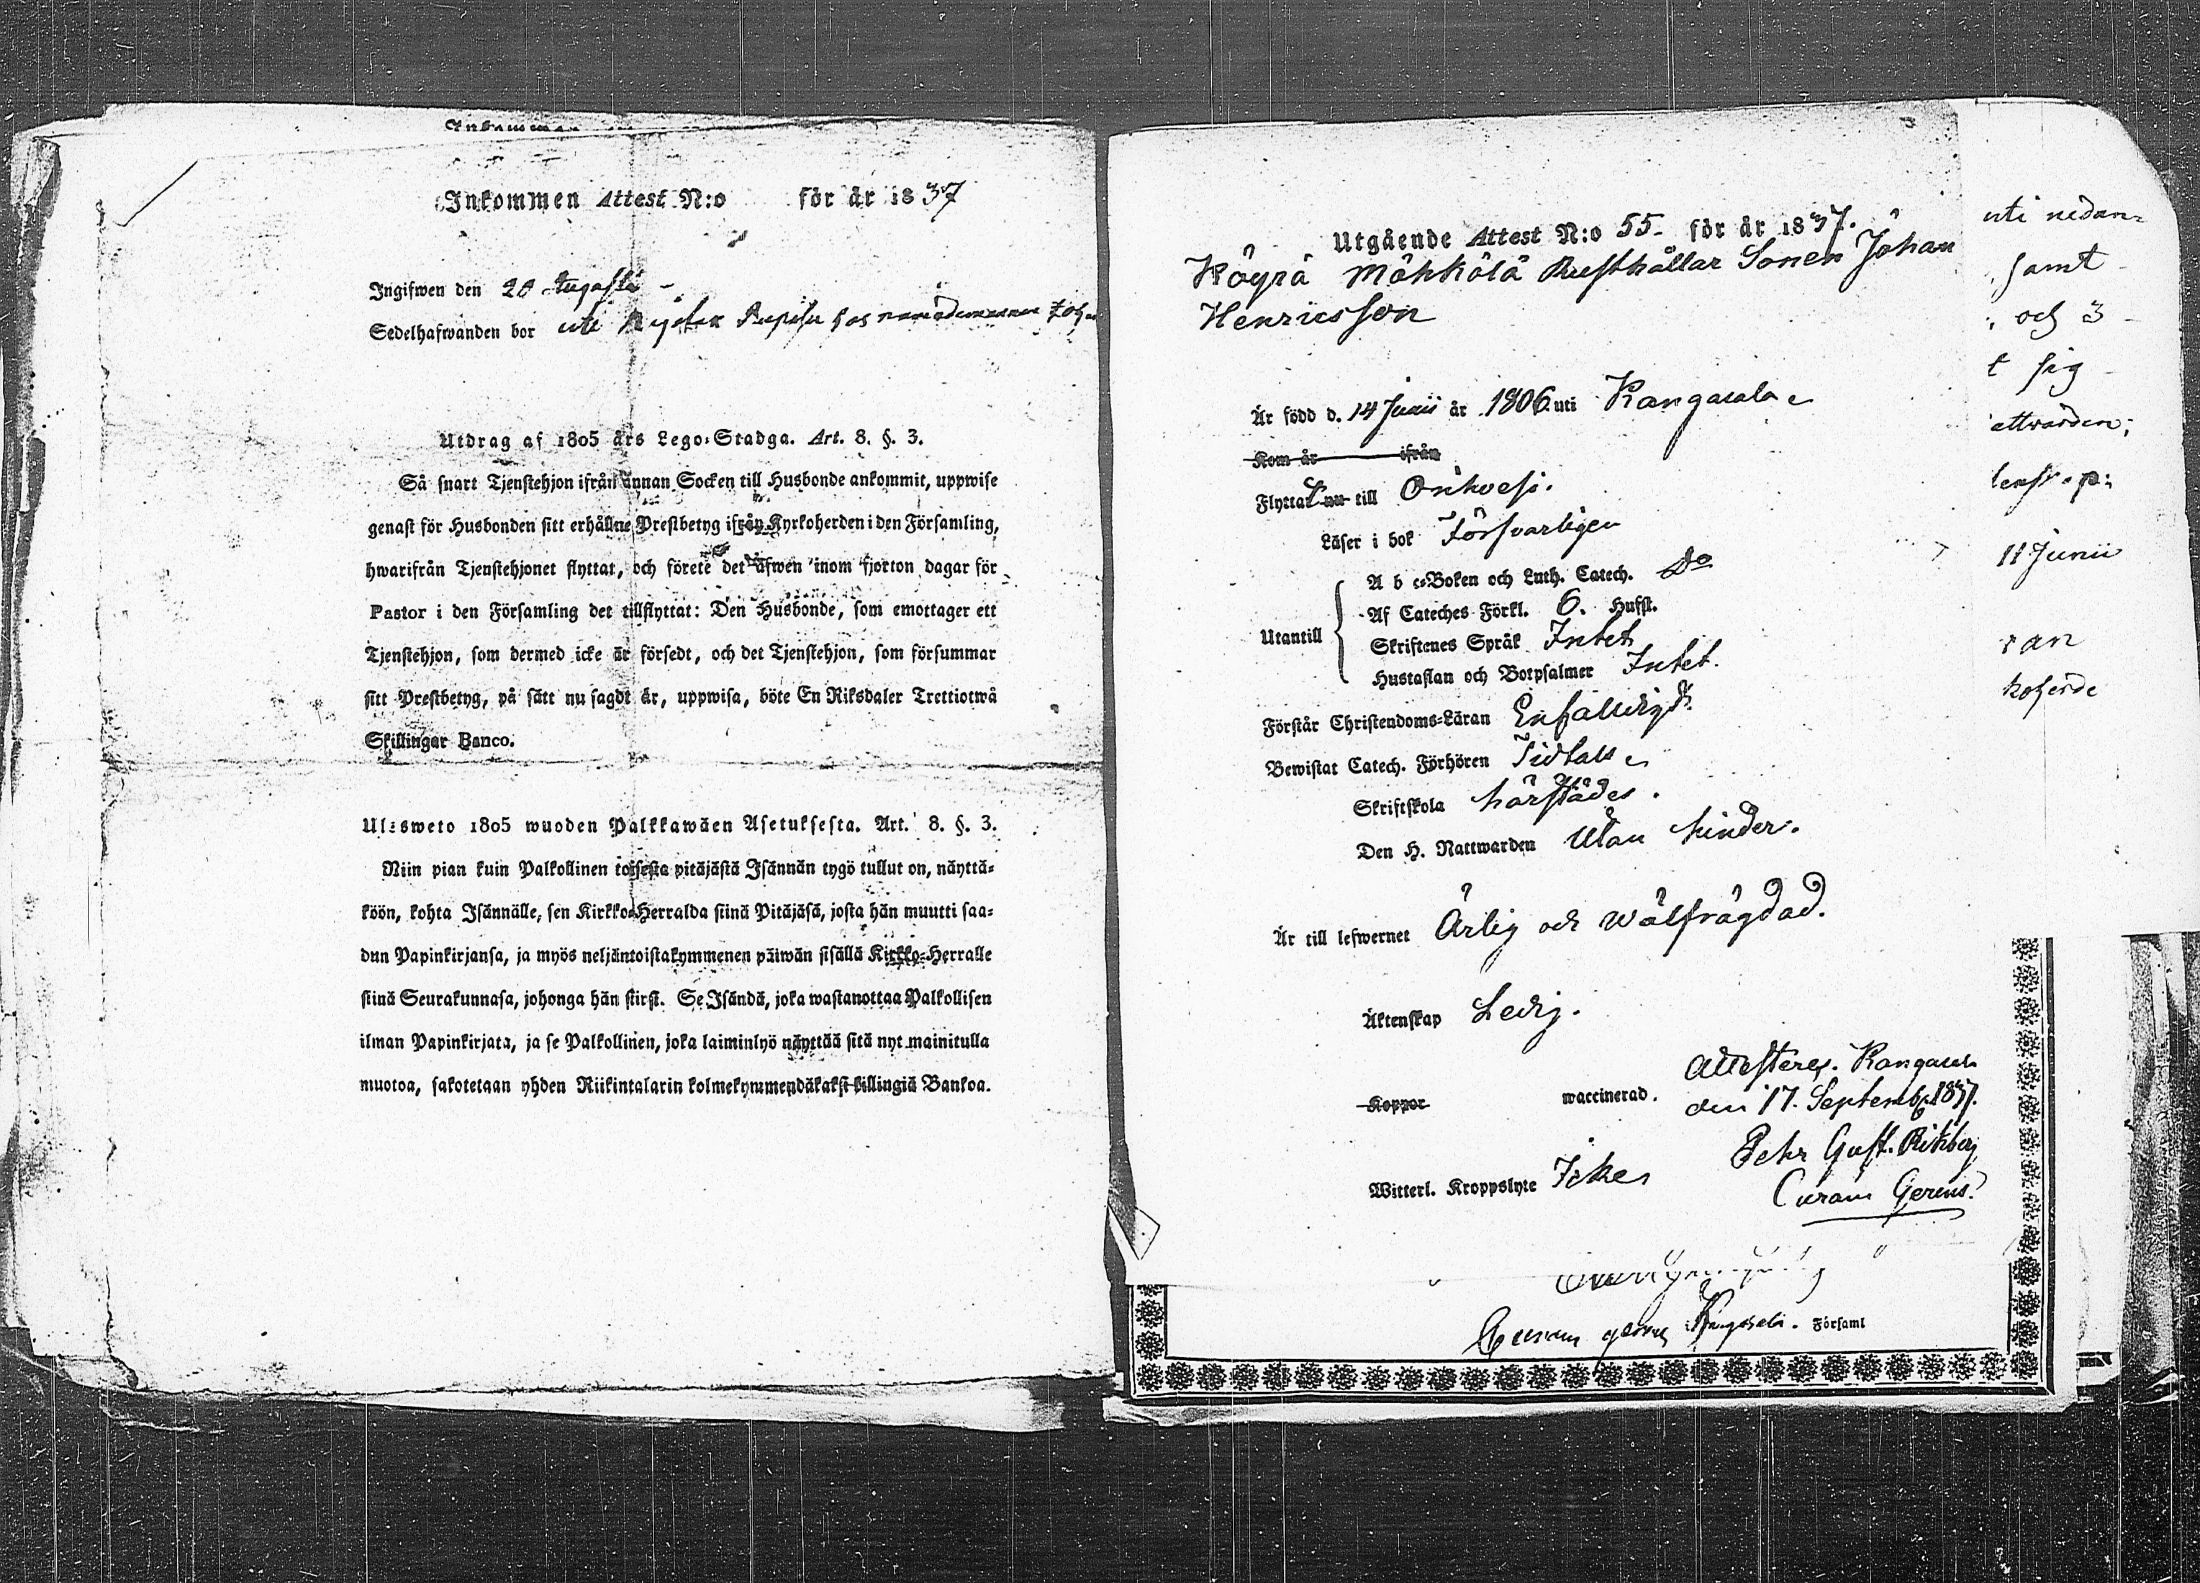 Inkommen Attest N:o för år 1837
Ingifwen den 20 Augusti
Sedelhafwanden bor uti hos
Utdrag af 1805 års Lego-Stadga. Art. 8. §. 3.
Så snart Tjenstehjon ifrån annan Socken till Husbonde ankommit, uppwise
genast för Husbonden sitt erhållne Prestbetyg ifrån Kyrkoherden i den Församling,
hwarifrån Tjenstehjonet flyttat, och förete det äfwen inom fjorton dagar för
Pastor i den Församling det tillflyttat: Den Husbonde, som emottager ett
Tjenstehjon, som dermed icke är försedt, och det Tjenstehjon, som försummar
sitt Prestbetyg, på sätt nu sagdt är, uppwisa, böte En Riksdaler Trettiotwå
Skillingar Banco.
Ulosweto 1805 wuoden Palkkawäen Asetuksesta. Art. 8. §. 3.
Niin pian kuin Palkollinen toisesta pitäjästä Isännän tygö tullut on, näyttä-
köön, kohta Isännälle, sen Kirkko-Herralda siinä Pitäjäsä, josta hän muutti saa-
dun Papinkirjansa, ja myös neljäntoistakymmenen päiwän sisällä Kirkko-Herralle
siinä Seurakunnasa, johonga hän siirst. Se Isändä, joka wastanottaa Palkollisen
ilman Papinkirjata, ja se Palkollinen, joka laiminlyö näyttää sitä nyt mainitulla
muotoa, sakotetaan yhden Riikintalarin kolmekymmendäkaksi killingiä Bankoa.
Utgående Attest N:o 55. för år 1837.
Köyrä Möhkölä Rusthållar Sonen Johan
Henricsson
Är född d. 14 Junii år 1806 uti Kangasala
Kom år ifrån
Flyttar nu till Orihvesi.
Läser i bok Försvarligen
Utantill
A b c-Boken och Luth. Catech. Do
Af Cateches Förkl. 6. Hufst.
Skriftenes Språk Intet
Hustaflan och Botpsalmer Intet.
Förstår Christendoms-Läran Enfalldigt.
Bewistat Catech. Förhören Tidtals
Skriftskola härstädes.
Den H. Nattwarden Utan hinder.
Är till lefwernet Ärlig och wälfrägdad.
Äktenskap Ledig.
Koppor waccinerad.
Attesteras. Kangasala
den 17. Septemb. 1837.
Petr Gust. Ritzberg
Curam Gerens.
Witterl. Kroppslyte Icke
Curam gerens Kangasala. Församl
uti nedan=
samt
och 3
t sig
attvarden;
11 Junii